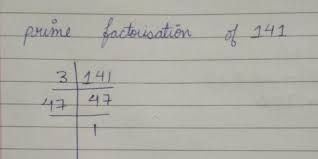 prime factorisation of 141
3 | 141
47 | 47
1